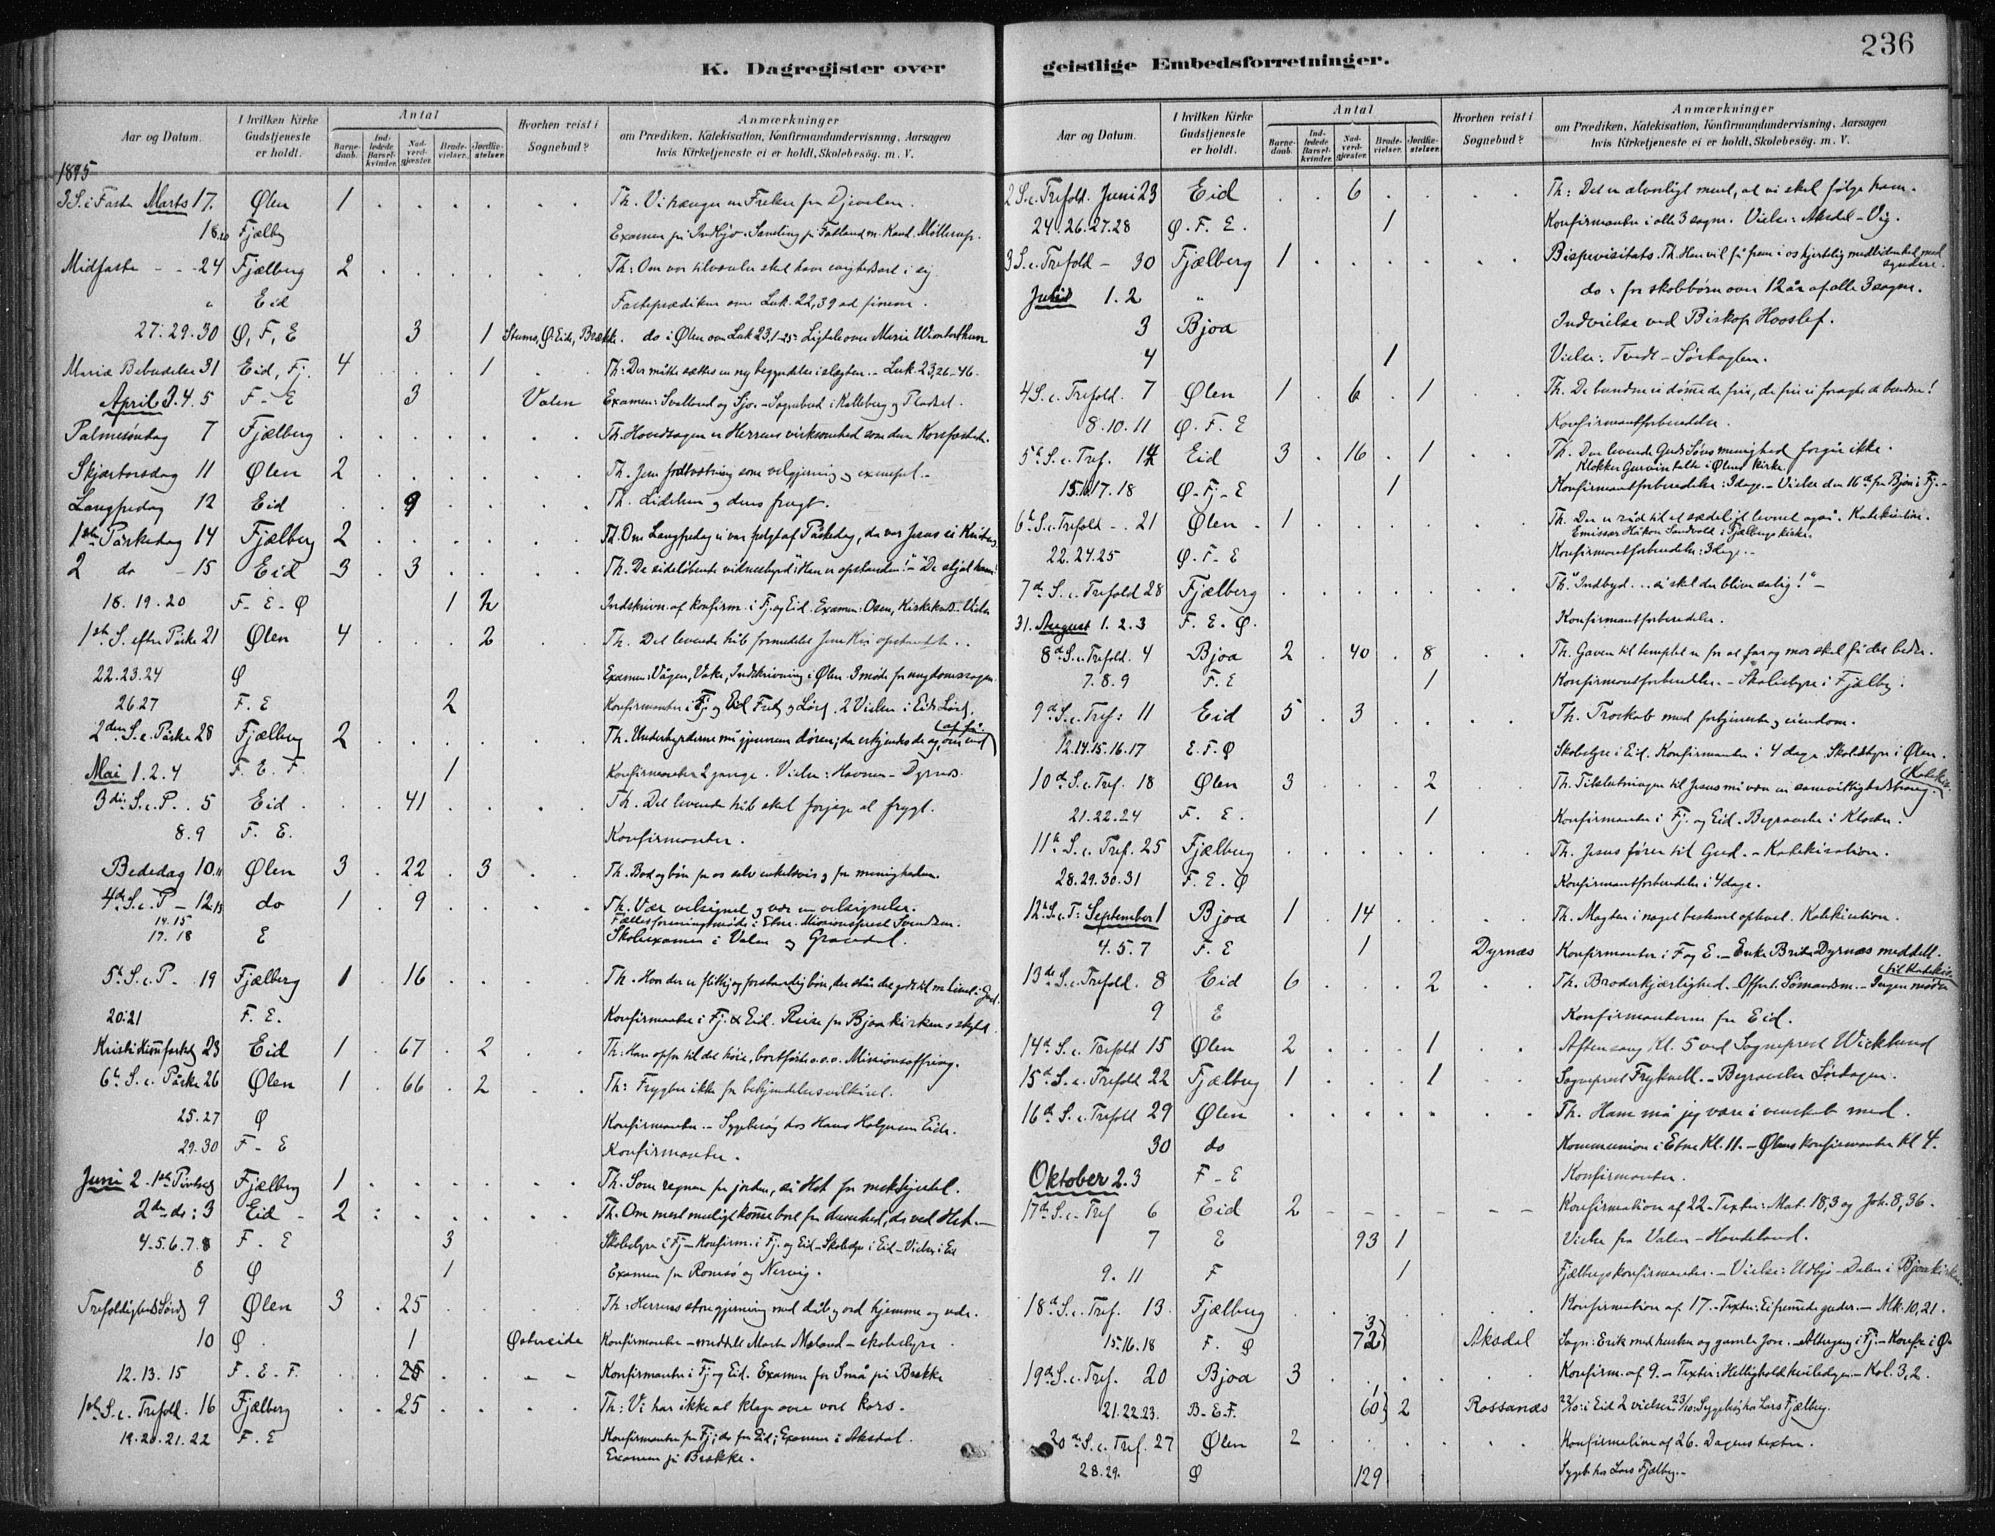 236
K. Dagregister over geistlige Embedsforretninger.
Aar og Datum.
I hvilken Kirke Gudstjeneste er holdt.
Antal
Barnedaab.
Indledede Barselkvinder.
Nadverdgjester.
Brudevielser.
Jordfæstelser.
Hvorhen reist i Sognebud?
Anmærkninger
om Prædiken, Katekisation, Konfirmandundervisning, Aarsagen
hvis Kirketjeneste ei er holdt, Skolebesøg. m. V.
1895
3 S. i Faste Marts 17. Ølen 1 Th. Vi hænger en Frelser fra Djævelen.
18. Fjælbg Examen på
Midfaste - - 24 Fjælberg 2 Th: Om vor tilværelse skal have varighed
" Eid Fasteprædiken over Luk. 22,39 ad finem.
27. 29. 30 Ø, F, E 3 1 Stums, Ø. Eide, Brække. do i Ølen over Luk 23,1-25. Ligtale over Marie
Mariæ Bebudelse 31 Eid, Fj. 4 1 Th: Der måtte sættes en ny begyndelse i slægten. - Luk. 23,26-46.
April 3. 4. 5 F - E 3 Valen Examen: Svolland og Sjo. - Sognebud i
Palmesøndag 7 Fjælberg Th. Hovedsagen er Herrens virksomhed som den Korsfæstede.
Skjærtorsdag 11 Ølen 2 Th. Jesu fodtvætning som velgjerning og exempel. -
Langfredag 12 Eid 9 Th. Lidelsen og dens frugt.
1ste Påskedag 14 Fjælberg 2 Th. Om Langfredag ei var fulgt af Påskedag, da var Jesus ei Kristus.
2 do - 15 Eid 3 3 Th. De sideløbende vidnesbyrd: "Han er opstanden!" - "De stjal ham!"
18. 19. 20 F - E - Ø 1 2 Indskrivn. af konfirm. i Fj. og Eid. Examen: Osen, Kirkekrds. Vielse
1ste S. efter Påske 21 Ølen 4 2 Th. Det levende håb formedelst Jesu Kri opstandelse.
22. 23. 24 Ø Examen: Vågen, Vake, Indskrivning i Ølen. 3 møde for ungdomssagen.
26. 27 F. E 2 Konfirmanter i Fj. og Eid Fred. og Lørd. 2 Vielser i Eid Lørd.
2den S. e. Påske 28 Fjælberg 2 Th. Underhyrderne må gjennem døren; da erkjendes de
Mai 1. 2. 4 F. E. F. 1 Konfirmanter 2 gange. Vielse: Havnen - Dyrnes.
3die S. e. P. . 5 Eid 41 Th. Det levende håb skal forjage al frygt.
8. 9 F. E. Konfirmanter.
Bededag 10. Ølen 3 22 3 Th. Bod og bøn for os selv enkeltvis og for menigheden.
4de S. e. P - 12.13 do 1 9 Th. Vær velsignet og vær en velsignelse.
14. 15 Fællesforeningsmøde i Etne. Missionsprest Svendsen.
17. 18 E Skoleexamen i Valen og Gravdal.
5te S. e. P - 19 Fjælberg 1 16 Th. Hvor der er flittig og forstandig bøn, der står det godt til m. livet i Gud.
20. 21 F. E. Konfirmanter i Fj. & Eid. Reise for Bjoa kirkens skyld.
Kristi Himmelfartsd. 23 Eid 1 67 2 Th: Han opfor til det høie, bortførte o.s.v. Missionsoffring.
6te S. e. Påske 26 Ølen 1 66 2 Th: Frygter ikke for bekjendelsesvilkåret.
25. 27 Ø Konfirmanter. - Sygebesøg hos Hans Halgeson Eide.
29. 30 F - E Konfirmanter.
Juni 2. 1ste Pintsed. Fjælberg 1 Th. Som regnen for jorden, så HÅ for mskhjertet.
2den do: 3 Eid - 2 Th. Om mest muligt komme bort fra dumhed, da ved HÅ. -
4. 5. 6. 7. 8 F. E 3 Skolestyre i Fj - Konfirm. i Fj. og Eid - Skolestyre i Eid - Vielse i Eid
8 Ø 1 Examen for Romsø og Nervig.
Trefoldighedssønd. 9 Ølen 3 25 Th: Herrens store gjerning med dåb og ord hjemme og ude.
10 Ø 1 Østreeide Konfirmanter - meddelt Marta Møland - skolestyre
12. 13. 15 F. E. F. 25 Konfirmanter i Fj. og Eid. Examen for Små på Brekke
1ste S. e. Trefold. 16 Fjælberg 25 Th: Vi har ikke at klage over vort kors.
19. 20. 21. 22 F. E Konfirmanter for Fj; do for Eid; Examen i Aksdal.
Examen på Brekke.
Aar og Datum.
I hvilken Kirke Gudstjeneste er holdt.
Antal
Barnedaab.
Indledede Barselkvinder.
Nadverdgjester.
Brudevielser.
Jordfæstelser.
Hvorhen reist i Sognebud?
Anmærkninger
om Prædiken, Katekisation, Konfirmandundervisning, Aarsagen
hvis Kirketjeneste ei er holdt, Skolebesøg. m. V.
2 S. e. Trefold. Juni 23 Eid 6 Th: Det er alvorligt ment, at vi skal følge ham.
24. 26. 27. 28 Ø. F. E. 1 Konfirmanter i alle 3 sogne. Vielse: Aksdal - Vig.
3 S. e. Trefold - 30 Fjælberg 1 Bispevisitats. Th. Han vil få frem i os hjertelig medlidenhed med syndere.
Juli 1. 2 " do : for skolebørn over 12 år af alle 3 sogne.
3 Bjoa Indvielse ved Biskop Hvoslef.
4 1 Vielse: Tvedt - Sørhaglen.
4 S. e. Trefold. 7 Ølen 1 6 1 Th. De bundne ei dømme de frie, de frie ei foragte de bundne!
8. 10. 11 Ø. F. E Konfirmantforberedelse.
5te S. e. Tref. 14 Eid 3 16 1 Th. Den levende Guds Søns menighed forgår ikke.
Klokker Garvin talte i Ølens kirke.
15. 16. 17. 18 Ø. Fj. E 1 Konfirmantforberedelse: 3 dage - Vielse den 16de fra Bjoa i Fj. -
6te S. e. Trefold - . 21 Ølen 1 Th. Der er råd til et sædeligt levnet også. Katekisation.
Emissær Håkon Sandvold i Fjælbergs kirke.
22. 24. 25 Ø. F. E Konfirmantforberedelse: 3 dage. -
7de S. e. Trefold 28 Fjælberg Th. "Indbyd... ei skal du blive salig!" -
31. August 1. 2. 3 F. E. Ø. Konfirmantforberedelse.
8de S. e. Trefold. 4 Bjoa 2 40 8 Th. Gaven til templet er for at far og mor skal få det bedre.
7. 8. 9 F. E 1 Konfirmantforberedelse. - Skolestyre i Fjælbg.
9de S. e. Tref: 11 Eid 5 3 Th. Troskab med fortjeneste og eiendom.
12. 14. 15. 16. 17 E. F. Ø Skolestyre i Eid. Konfirmanter i 4 dage. Skolestyre i Ølen.
10de S. e. Tref. 18 Ølen 3 2 Th. Tilslutningen til Jesus må være en samvittighedstrang. Katekis.
21. 22. 24 F. E. 1 Konfirmanter i Fj. og Eid. Begravelse i Kloster.
11te S. e. Tref. 25 Fjælberg Th. Jesus fører til Gud. - Katekisation.
28. 29. 30. 31 F. E. Ø Konfirmantforberedelse i 4 dage.
12te S. e. T: September 1 Bjoa 1 14 Th. Magten i noget bestemt ophævet. Katekisation.
4. 5. 7 F. E 1 Dyrnæs Konfirmanter i F og E. - Enke Brita Dyrnæs meddelt.
13de S. e. Trefold. 8 Eid 6 2 Th. Broderkjærlighed. - Offert. Sømandsm. - Ingen møder til Katekis.
9 E Konfirmanterne for Eid.
14de S. e. Trefold 15 Ølen 2 1 Aftensang Kl. 5 ved Sogneprest Wicklund
15de S. e. Trefold 22 Fjælberg 1 1 Sogneprest Fryknell. - Begravelse Lørdagen.
16de S. e. Trefold 29 Ølen Th. Ham må jeg være i venskab med.
30 do Kommunion i Etne Kl. 11. - Ølens konfirmanter Kl 4.
Oktober 2. 3 F - E Konfirmanter.
17de S. e. Tref 6 Eid 2 Konfirmation af 22 - Texter: Mat. 18,3 og Joh. 8,36.
7 E 93 1 Vielse fra Valen - Handeland.
9. 11 F 1 Fjælbergs konfirmanter. - Vielse: Utbjo - Dalen i Bjoa kirken
18de S. e. Tref. 13. Fjælberg Konfirmation af 17. - Texter: Ei fremmede guder. - Mk. 10,21.
15. 16. 18 F. Ø 3 72 Aksdal Sogn: Erik med hustru og gamle Jon. - Altergang i Fj. - Konfir i Ø
19de S. e. Tref. 20 Bjoa 3 Konfirm. af 9. - Texter: Hellighold hviledagen - Kol. 3,2.
21. 22. 23. B - E. F. 1 60 2 Rossanæs 22/10: i Eid 2 vielser. 23/10: Sygebesøg hos Lars Fjælberg.
20de S. e. Tref. 27 Ølen 2 Konfirmation af 26. Dagens texter.
28. 29. Ø 129 Sygeb. hos Lars Fjælberg. -